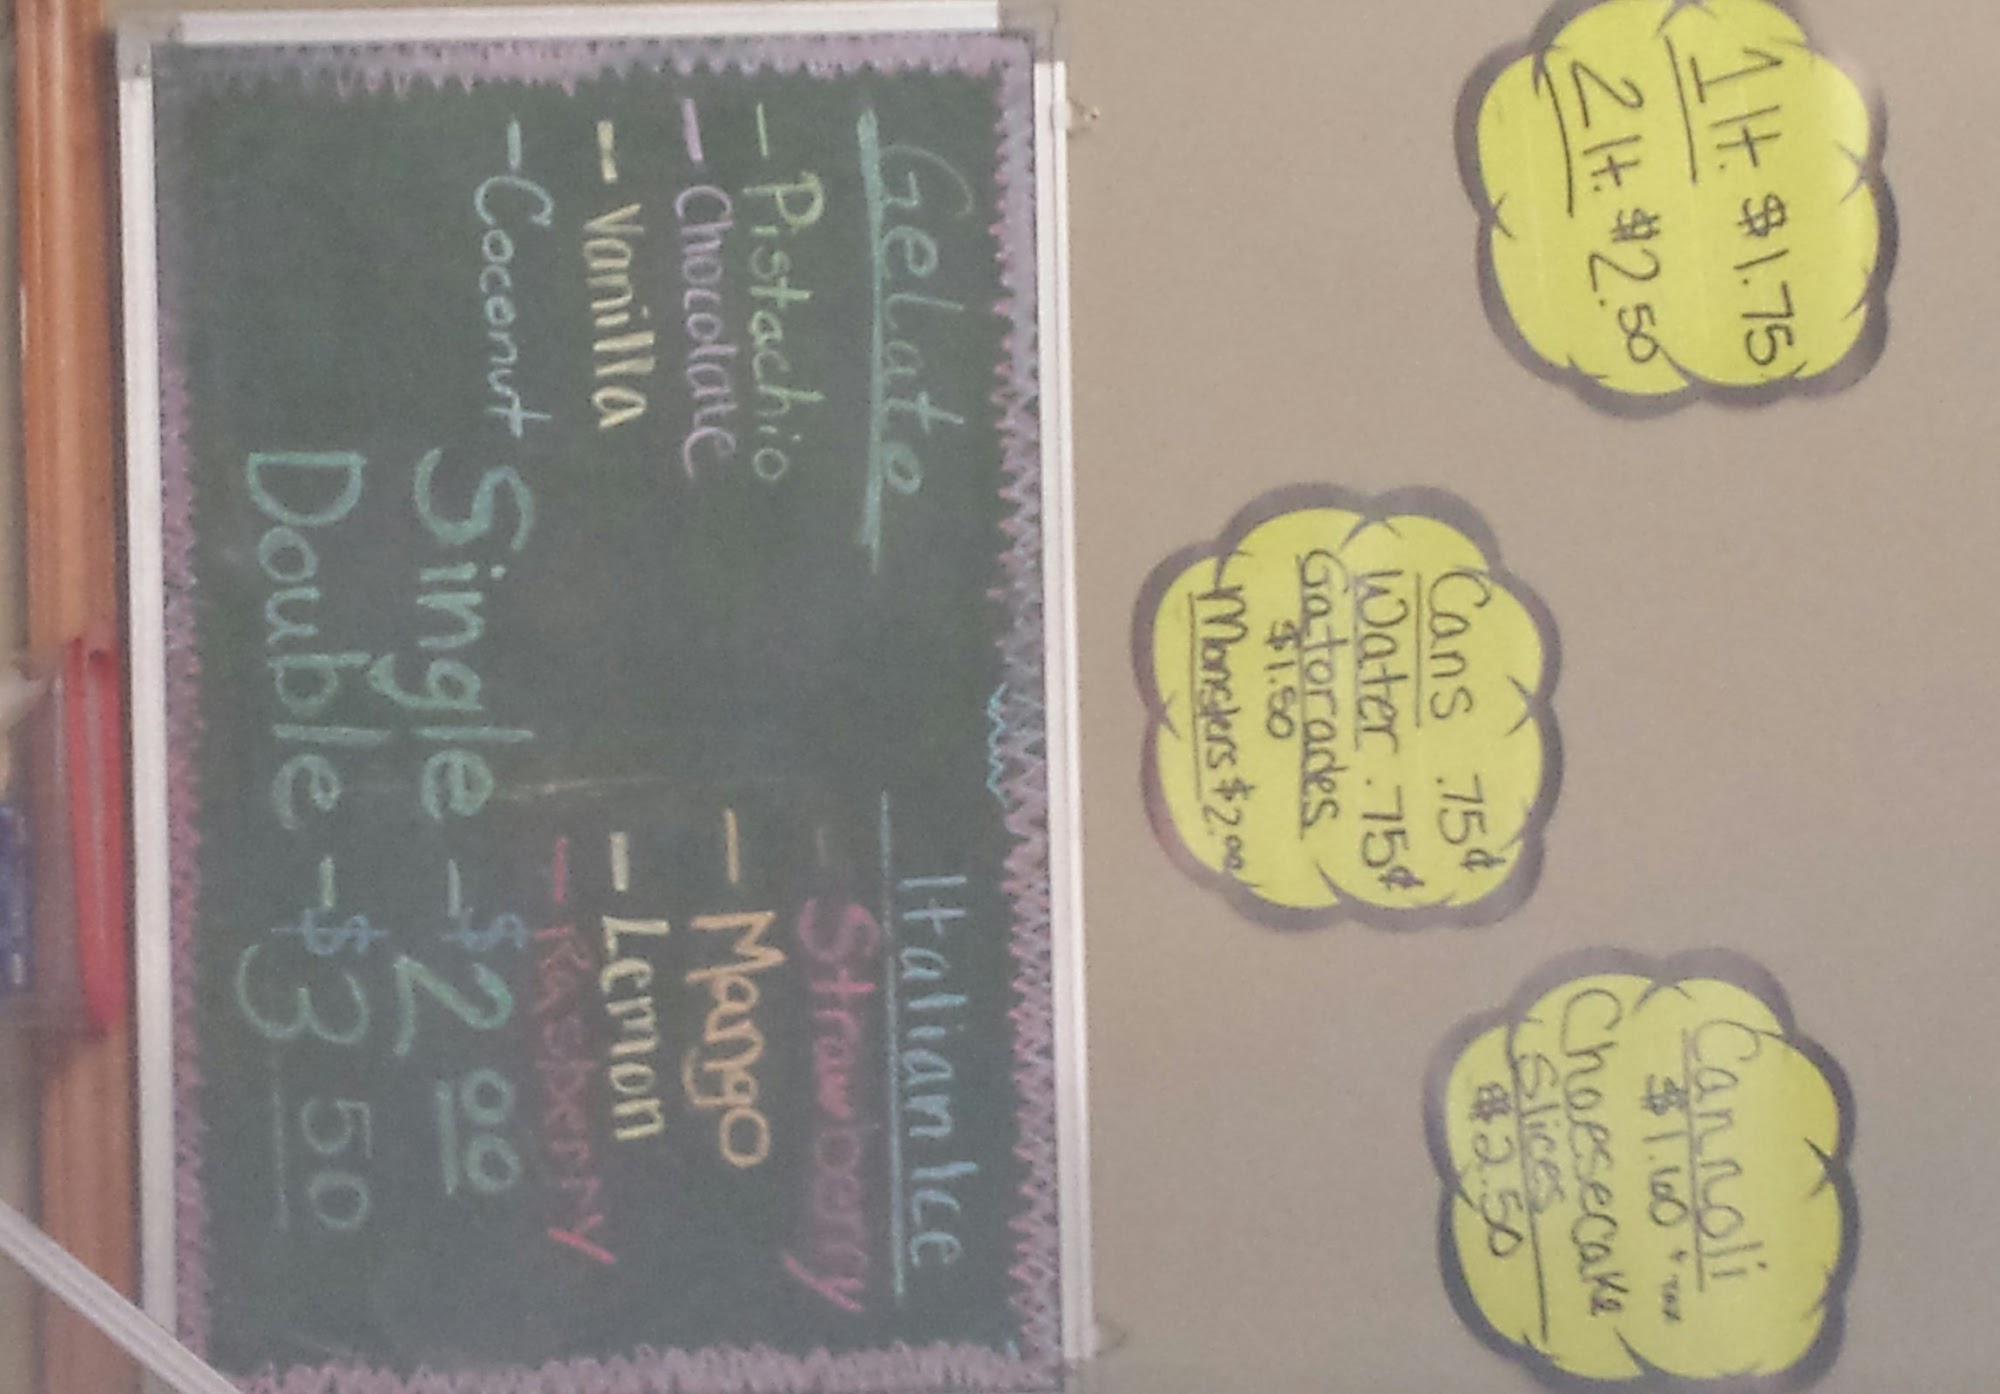 1 lt. $1.75
2 lt. $2.50
Cans .75¢
Water .75¢
Gatorades
$1.50
Monsters $2.00
Cannoli
$1.60 + tax
Cheesecake
Slices
$2.50
Gelato
- Pistachio
- Chocolate
- Vanilla
- Coconut
Italian Ice
- Strawberry
- Mango
- Lemon
- Rasberry
Single - $2 00
Double - $3 50